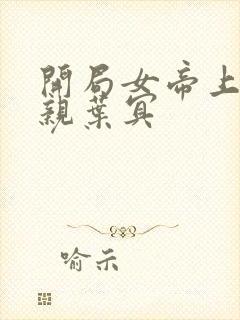 開局女帝上
親葉冥
喻示